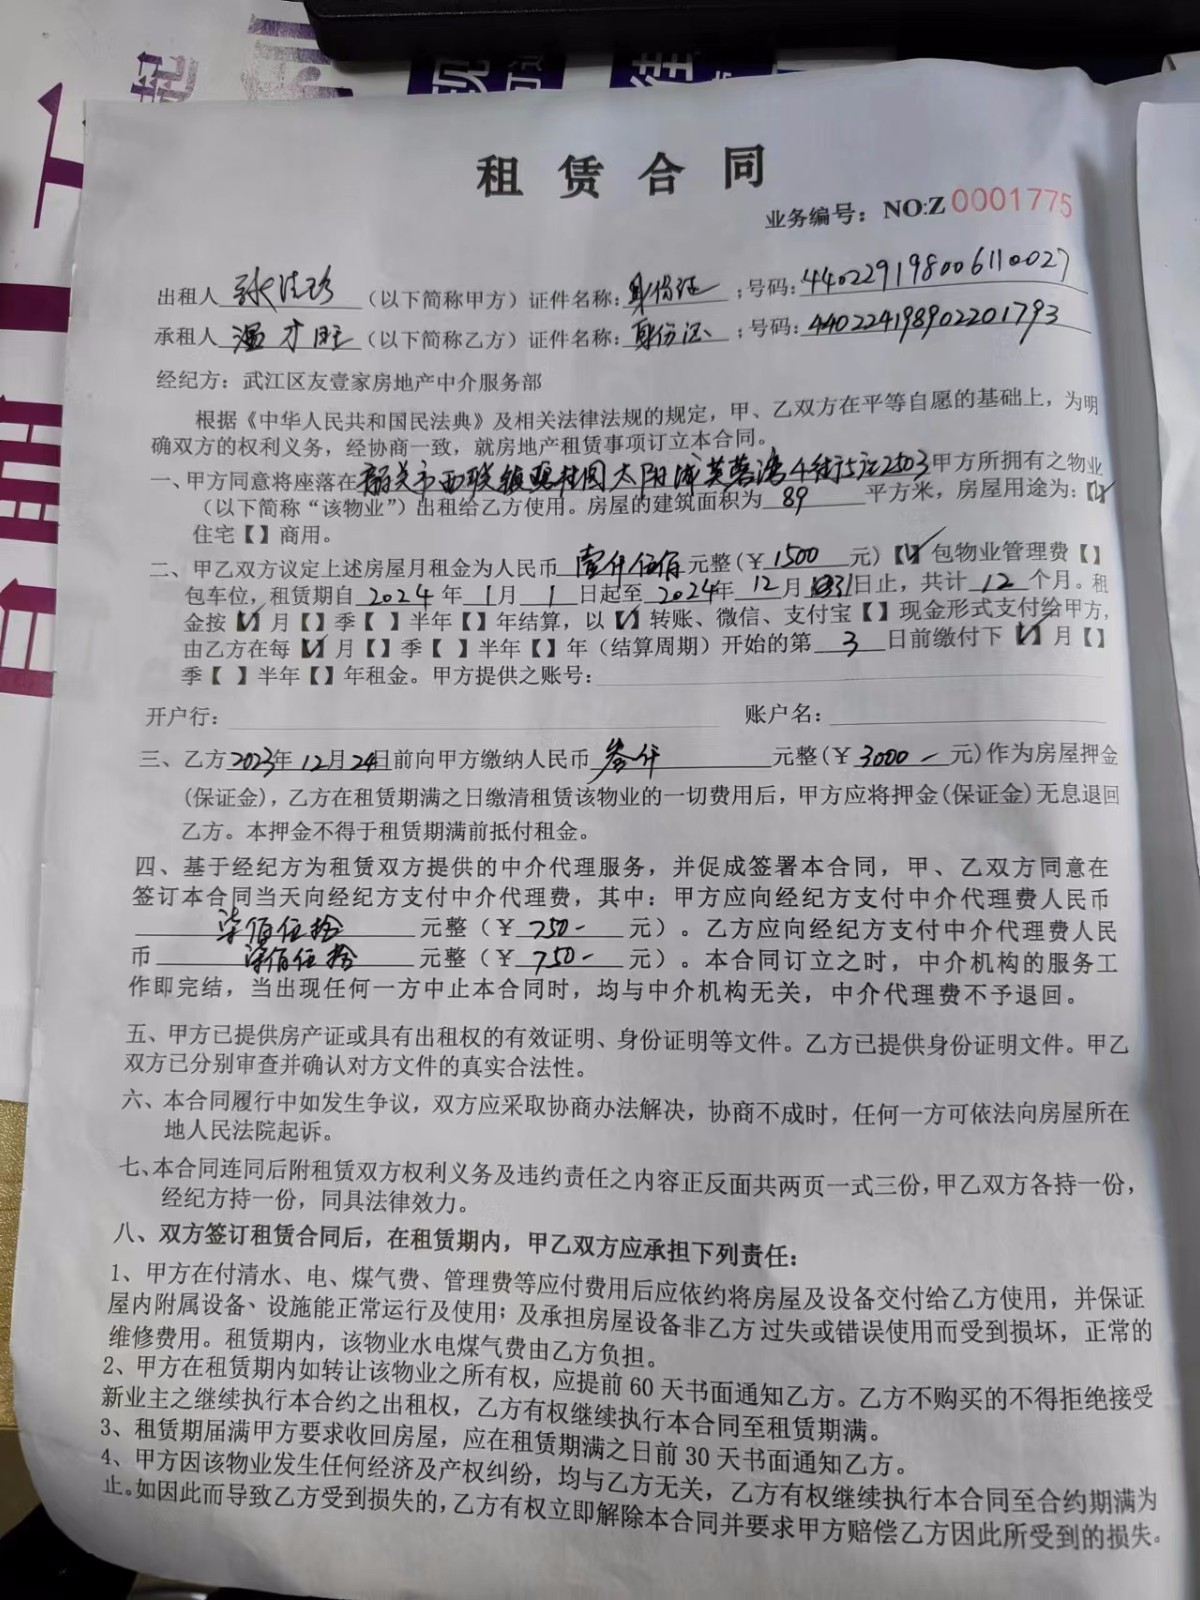 租赁合同
业务编号：NO:Z0001775
出租人 （以下简称甲方）证件名称：身份证 ；号码：440229198006110027
承租人 温才旺 （以下简称乙方）证件名称：身份证 ；号码：440224198902201793
经纪方：武江区友壹家房地产中介服务部
根据《中华人民共和国民法典》及相关法律法规的规定，甲、乙双方在平等自愿的基础上，为明
确双方的权利义务，经协商一致，就房地产租赁事项订立本合同。
一、甲方同意将座落在韶关市西联镇碧桂园太阳城芙蓉湾4街5座2503甲方所拥有之物业
（以下简称“该物业”）出租给乙方使用。房屋的建筑面积为 89 平方米，房屋用途为：【√】
住宅【】商用。
二、甲乙双方议定上述房屋月租金为人民币 壹仟伍佰 元整(￥1500 元)【√】包物业管理费【】
包车位，租赁期自 2024 年 1 月 1 日起至 2024年 12 月 31日止，共计 12 个月。租
金按【√】月【】季【】半年【】年结算，以【√】转账、微信、支付宝【】现金形式支付给甲方，
由乙方在每【√】月【】季【】半年【】年（结算周期）开始的第 3 日前缴付下【√】月【】
季【】半年【】年租金。甲方提供之账号：
开户行： 账户名：
三、乙方2023年12月24日前向甲方缴纳人民币 叁仟 元整(￥3000 - 元)作为房屋押金
(保证金)，乙方在租赁期满之日缴清租赁该物业的一切费用后，甲方应将押金(保证金)无息退回
乙方。本押金不得于租赁期满前抵付租金。
四、基于经纪方为租赁双方提供的中介代理服务，并促成签署本合同，甲、乙双方同意在
签订本合同当天向经纪方支付中介代理费，其中：甲方应向经纪方支付中介代理费人民币
柒佰伍拾 元整（￥750- 元）。乙方应向经纪方支付中介代理费人民
币 柒佰伍拾 元整（￥750- 元）。本合同订立之时，中介机构的服务工
作即完结，当出现任何一方中止本合同时，均与中介机构无关，中介代理费不予退回。
五、甲方已提供房产证或具有出租权的有效证明、身份证明等文件。乙方已提供身份证明文件。甲乙
双方已分别审查并确认对方文件的真实合法性。
六、本合同履行中如发生争议，双方应采取协商办法解决，协商不成时，任何一方可依法向房屋所在
地人民法院起诉。
七、本合同连同后附租赁双方权利义务及违约责任之内容正反面共两页一式三份，甲乙双方各持一份，
经纪方持一份，同具法律效力。
八、双方签订租赁合同后，在租赁期内，甲乙双方应承担下列责任：
1、甲方在付清水、电、煤气费、管理费等应付费用后应依约将房屋及设备交付给乙方使用，并保证
屋内附属设备、设施能正常运行及使用；及承担房屋设备非乙方过失或错误使用而受到损坏，正常的
维修费用。租赁期内，该物业水电煤气费由乙方负担。
2、甲方在租赁期内如转让该物业之所有权，应提前60天书面通知乙方。乙方不购买的不得拒绝接受
新业主之继续执行本合约之出租权，乙方有权继续执行本合同至租赁期满。
3、租赁期届满甲方要求收回房屋，应在租赁期满之日前30天书面通知乙方。
4、甲方因该物业发生任何经济及产权纠纷，均与乙方无关，乙方有权继续执行本合同至合约期满为
止。如因此而导致乙方受到损失的，乙方有权立即解除本合同并要求甲方赔偿乙方因此所受到的损失。